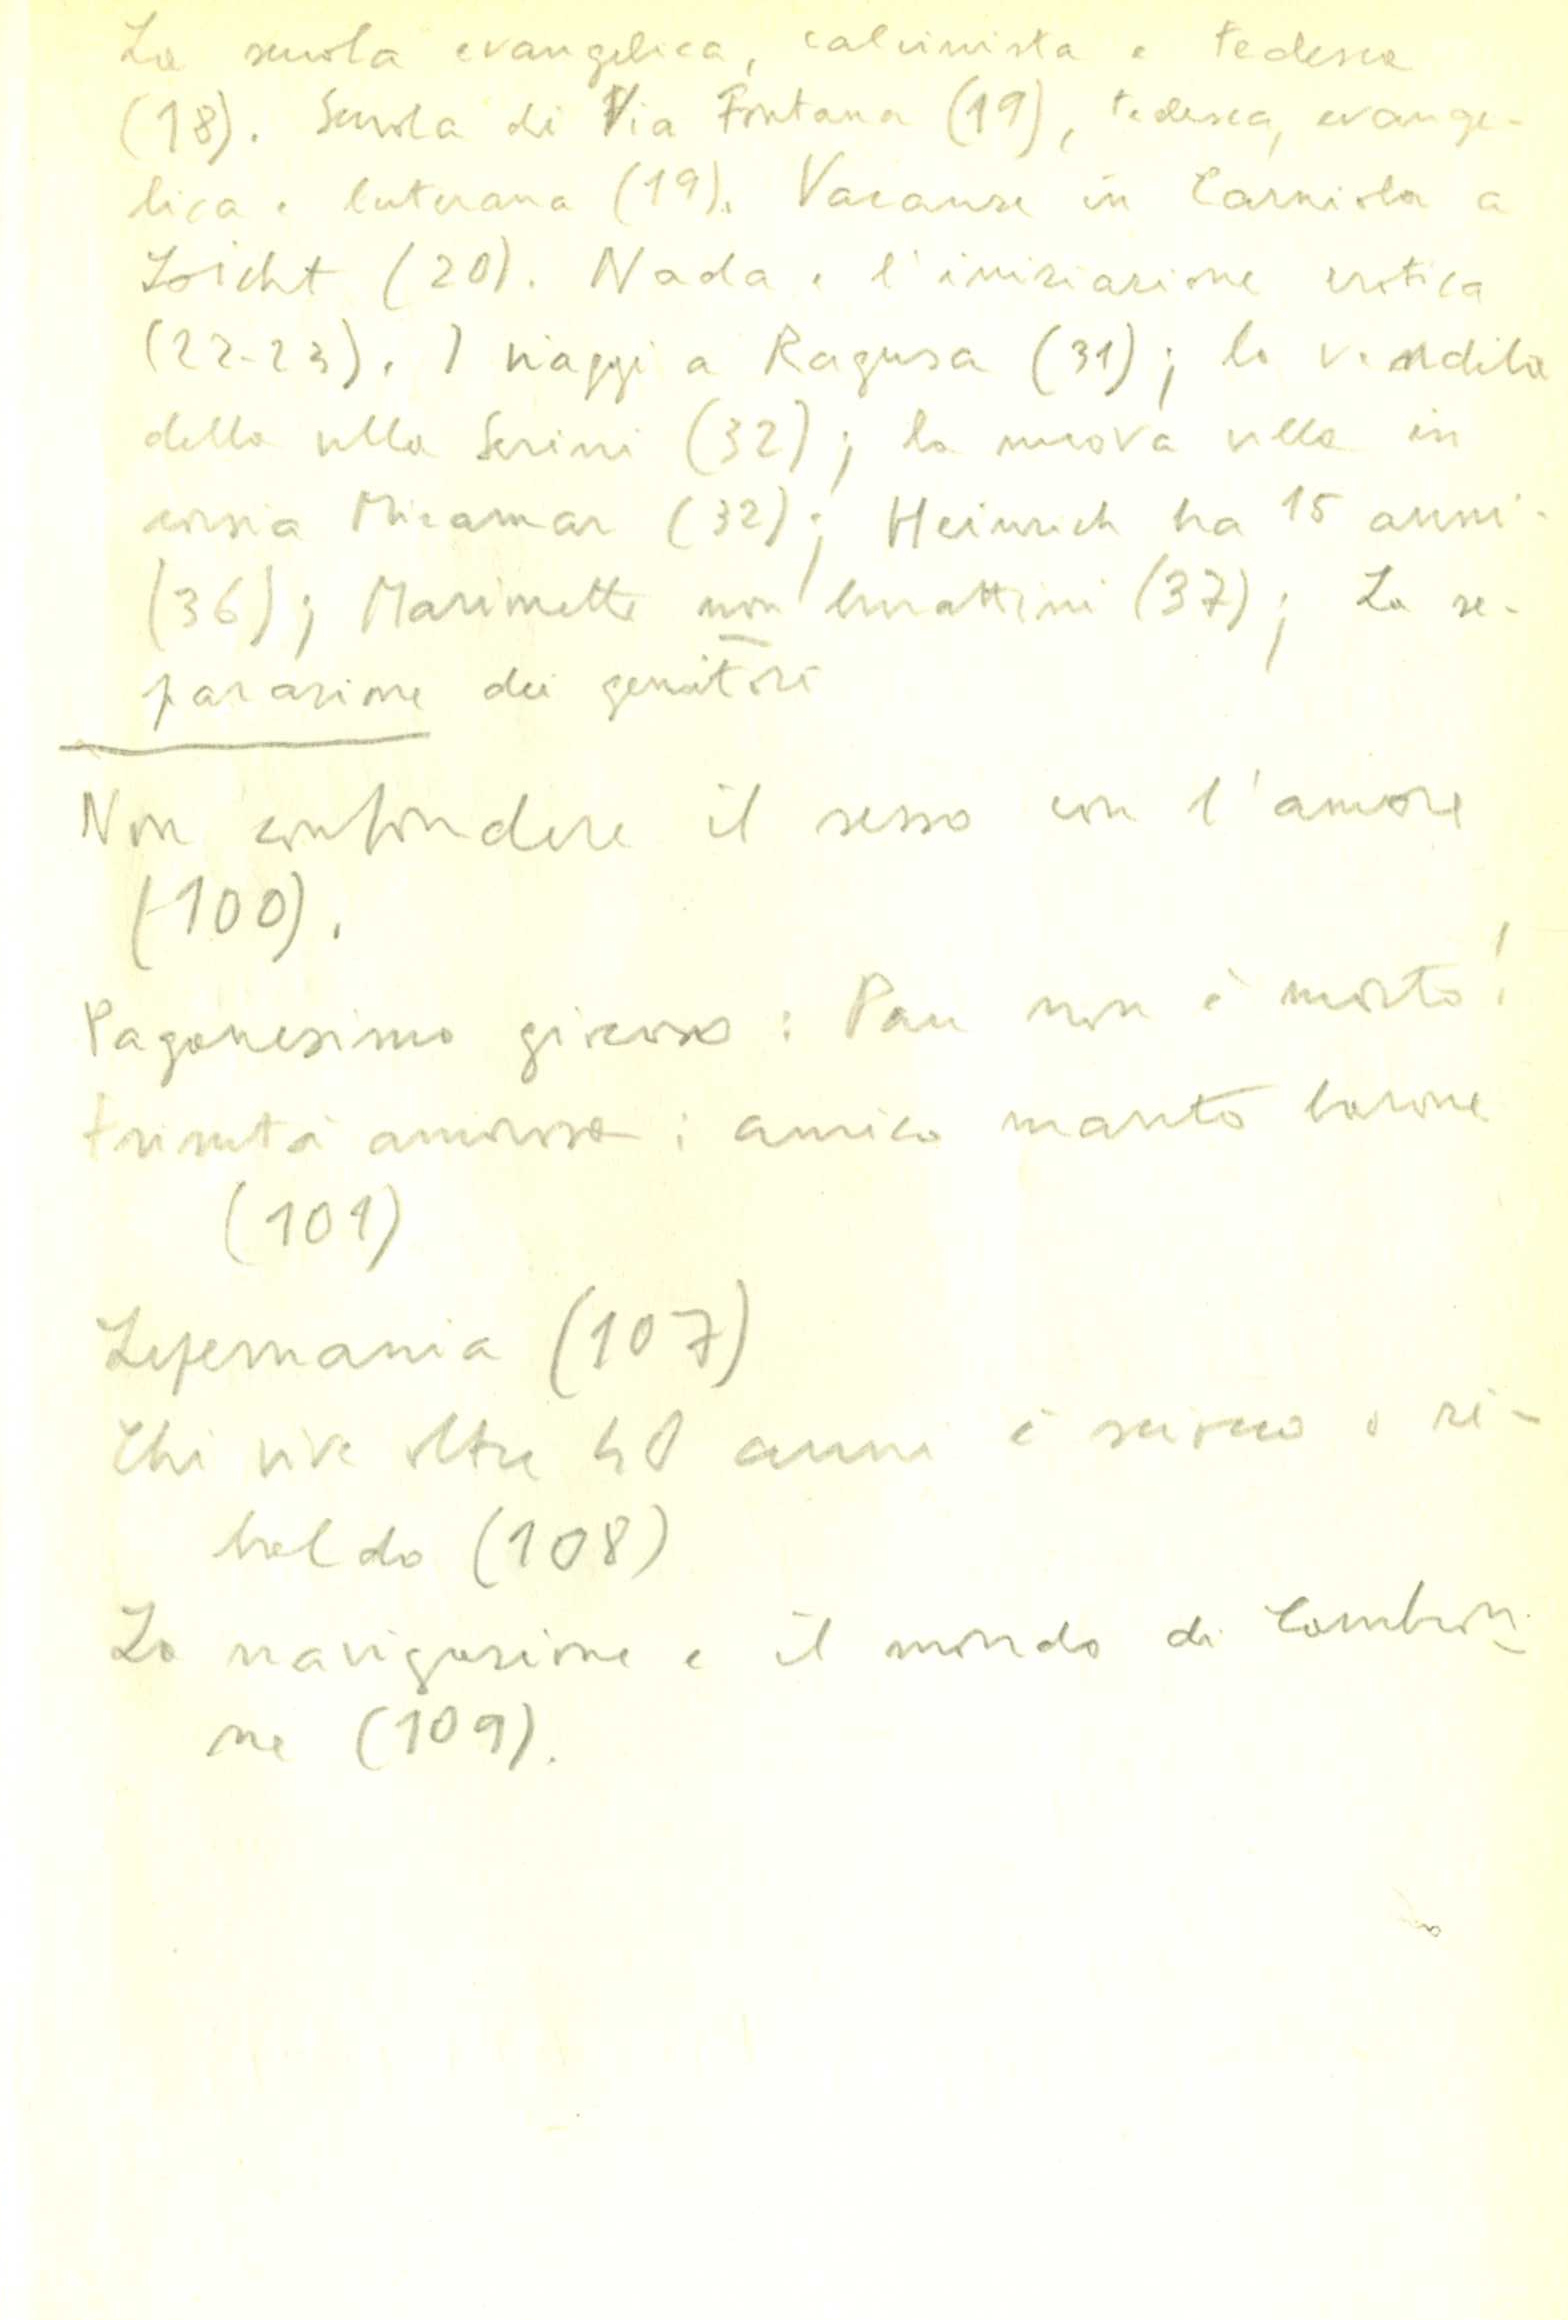 La scuola evangelica, calvinista e tedesca
(18). Scuola di Via Fontana (19), tedesca, evange-
lica e luterana (19). Vacanze in Carniola a
Loicht (20). Nada e l'iniziazione erotica
(22-23). I viaggi a Ragusa (31); la vendita
della villa Serini (32); la nuova villa in
corsia Miramar (32); Heinrich ha 15 anni
(36); Marionette non burattini (37); La se-
parazione dei genitori
Non confondere il sesso con l'amore
(100).
Paganesimo giocoso: Pan non è morto!
trinità amorosa: amico marito barone
(101)
Lepemania (107)
Chi vive oltre 40 anni è sciocco o ri-
baldo (108)
La navigazione e il mondo di Cambron-
ne (109).